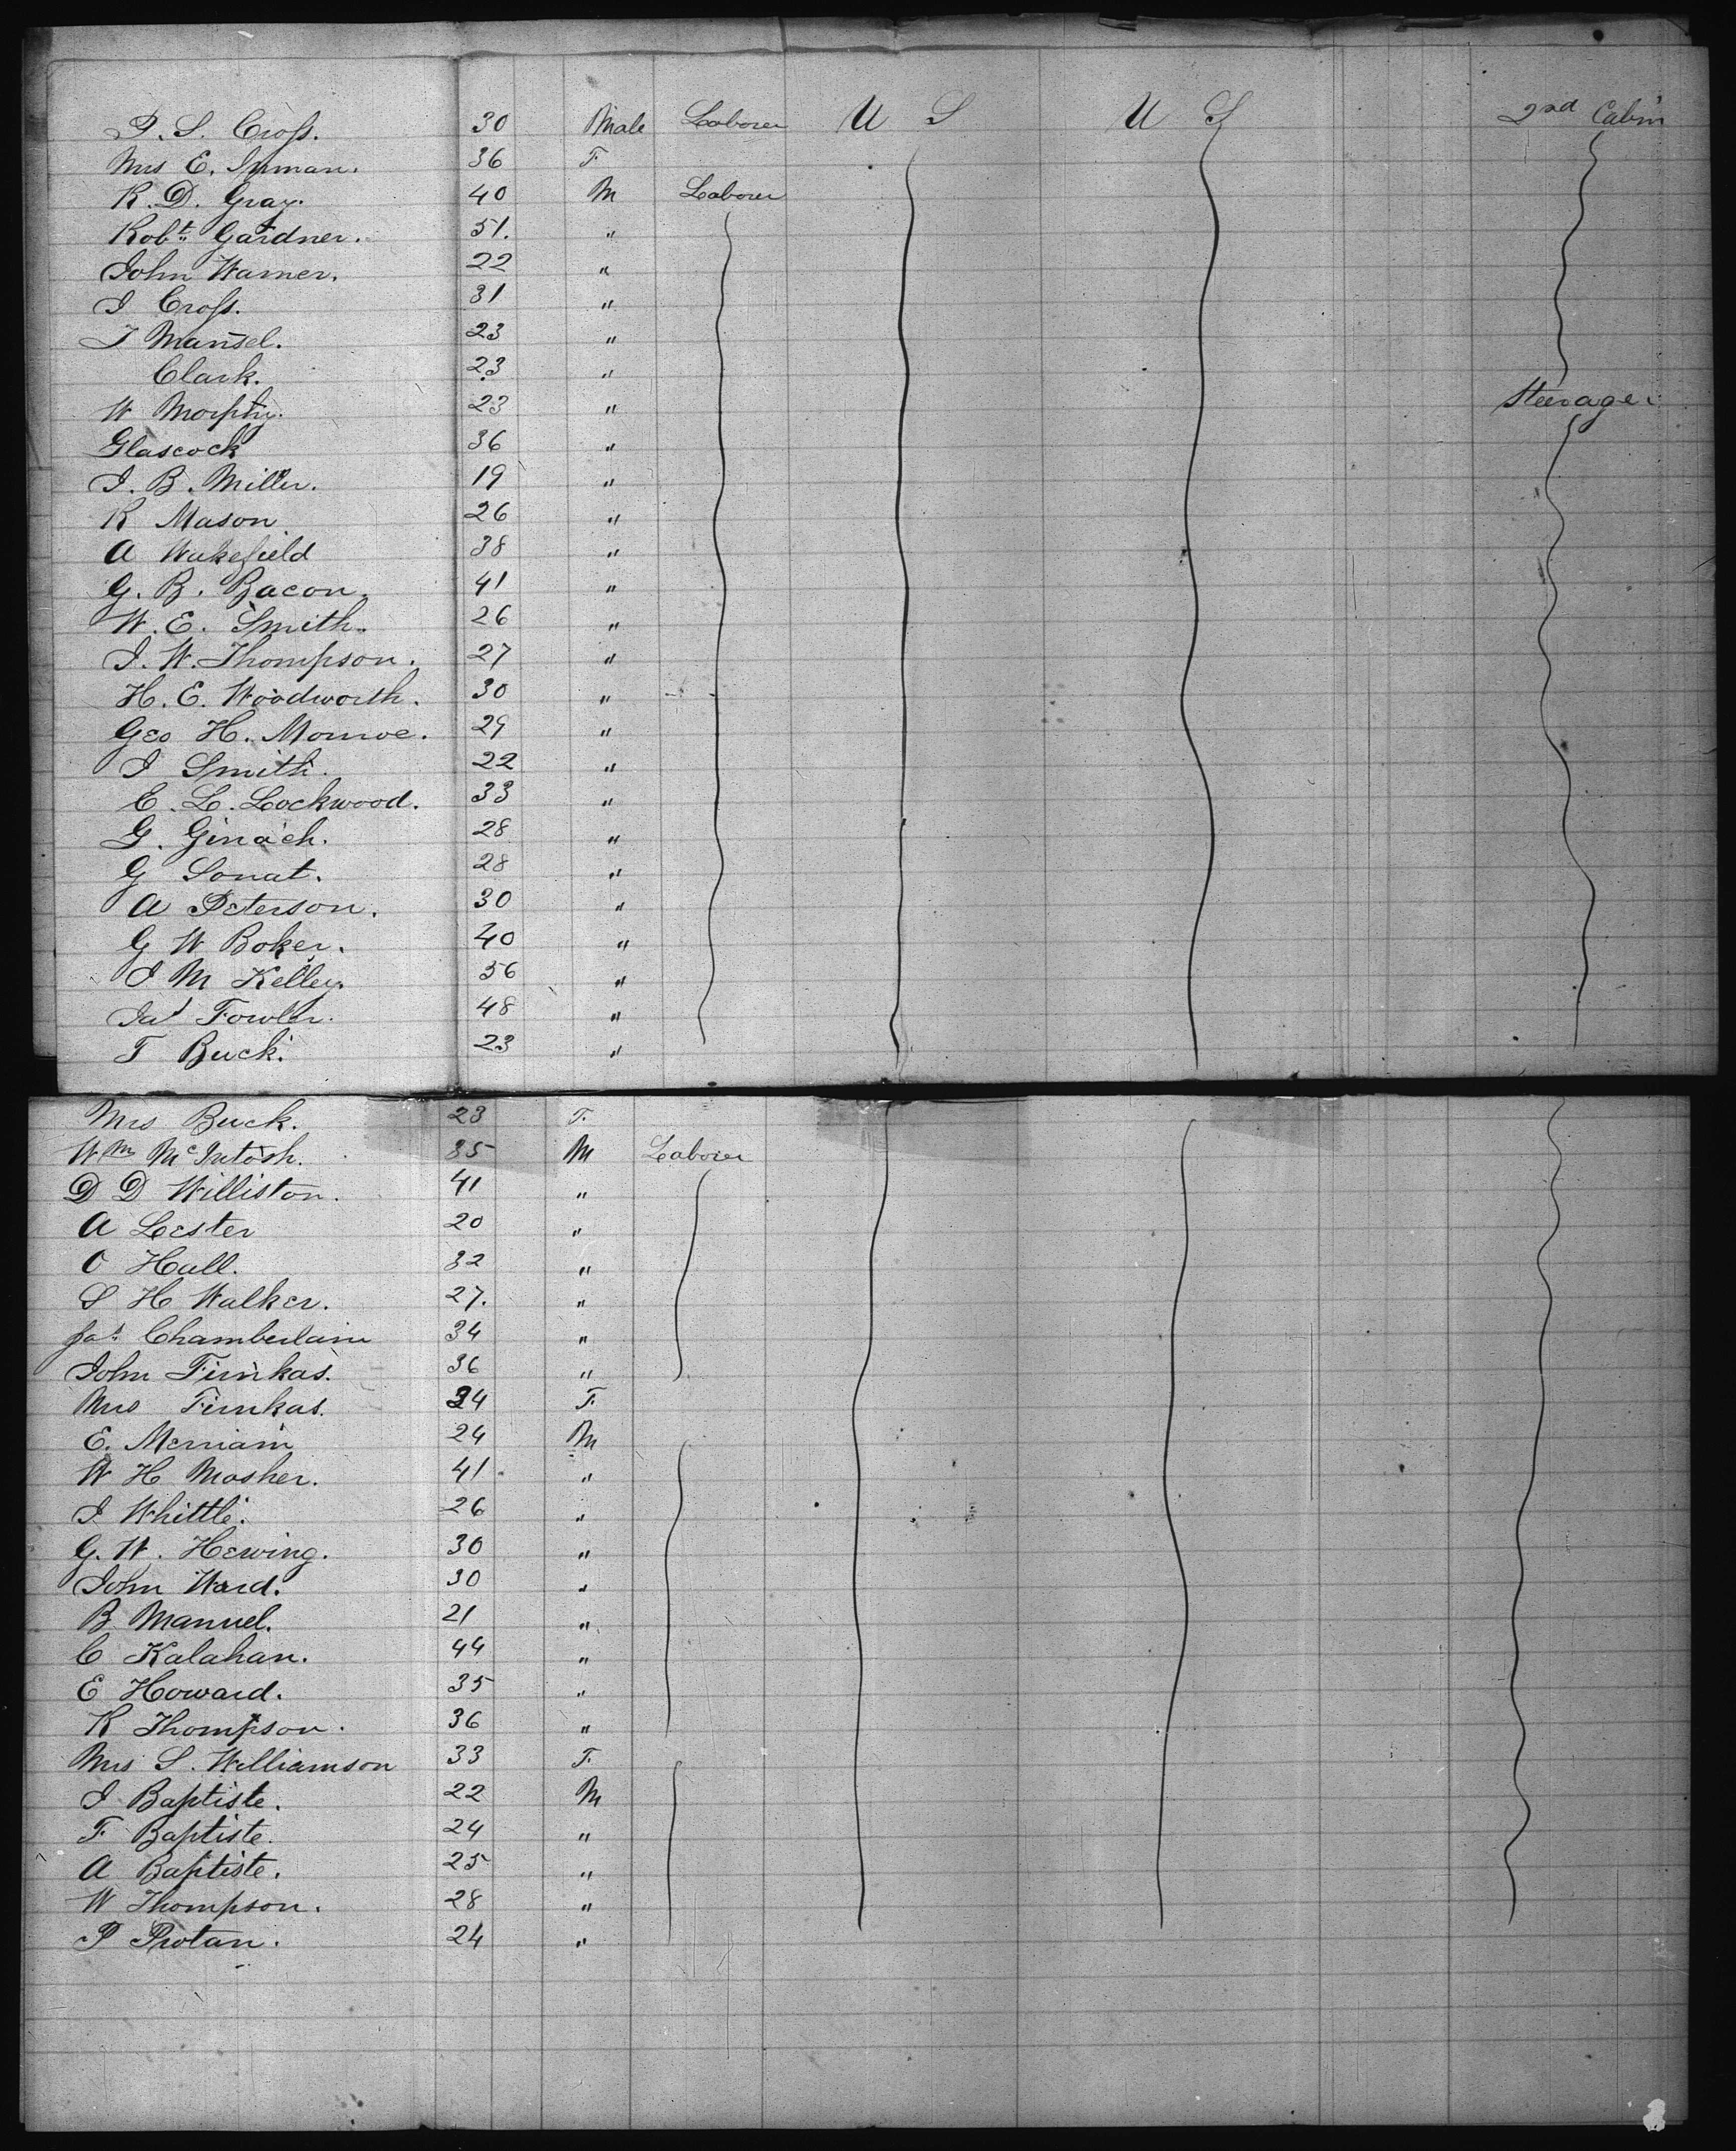 P. S. Cross. 30 Male Laborer U S U S 2nd Cabin
Mrs E. Inman. 36 F.
R. D. Gray. 40 M Laborer
Robt. Gardner. 51. "
John Warner. 22 "
I Cross. 31 "
J Mansel. 23 "
Clark. 23 "
W Morphy. 23 " Steerage.
Glascock 36 "
I. B. Miller. 19 "
R Mason 26 "
A Wakefield 38 "
G. B. Bacon. 41 "
W. E. Smith. 26 "
I. W. Thompson. 27 "
H. E. Woodworth. 30 "
Geo H. Monroe. 29 "
I Smith. 22 "
C. L. Lockwood. 33 "
G. Ginach. 28 "
G Sonat. 28 "
A Peterson. 30 "
G W Boker. 40 "
I M Kelley. 56 "
Jas Fowler. 48 "
T Buck. 23 "
Mrs Buck. 23 F.
Wm McIntosh. 35 M Laborer
D D Williston. 41 "
A Lester 20 "
O Hall. 32 "
S H Walker. 27. "
Jas. Chamberlain 34 "
John Finkas. 36 "
Mrs Finkas. 34 F.
E. Merriam 24 M
W H Mosher. 41. "
I Whittle. 26 "
G. W. Hewing. 30 "
John Ward. 30 "
B Manuel. 21 "
C Kalahan. 44 "
E Howard. 35 "
R Thompson. 36 "
Mrs S. Williamson 33 F.
I Baptiste. 22 M
F Baptiste. 24 "
A Baptiste. 25 "
W Thompson. 28 "
P Protan. 24 "